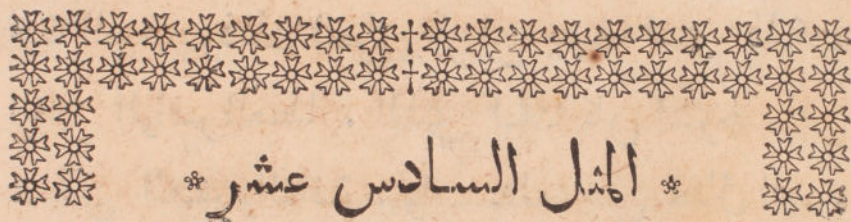 * المثل السادس عشر *